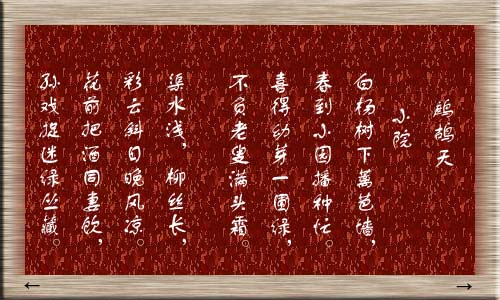 鹧鸪天
小院
白杨树下篱笆墙，
春到小园播种忙。
喜得幼芽一圃绿，
不负老叟满头霜。
渠水浅，柳丝长，
彩云斜日晚风凉。
花前把酒同妻饮，
孙戏捉迷绿丛藏。
← →